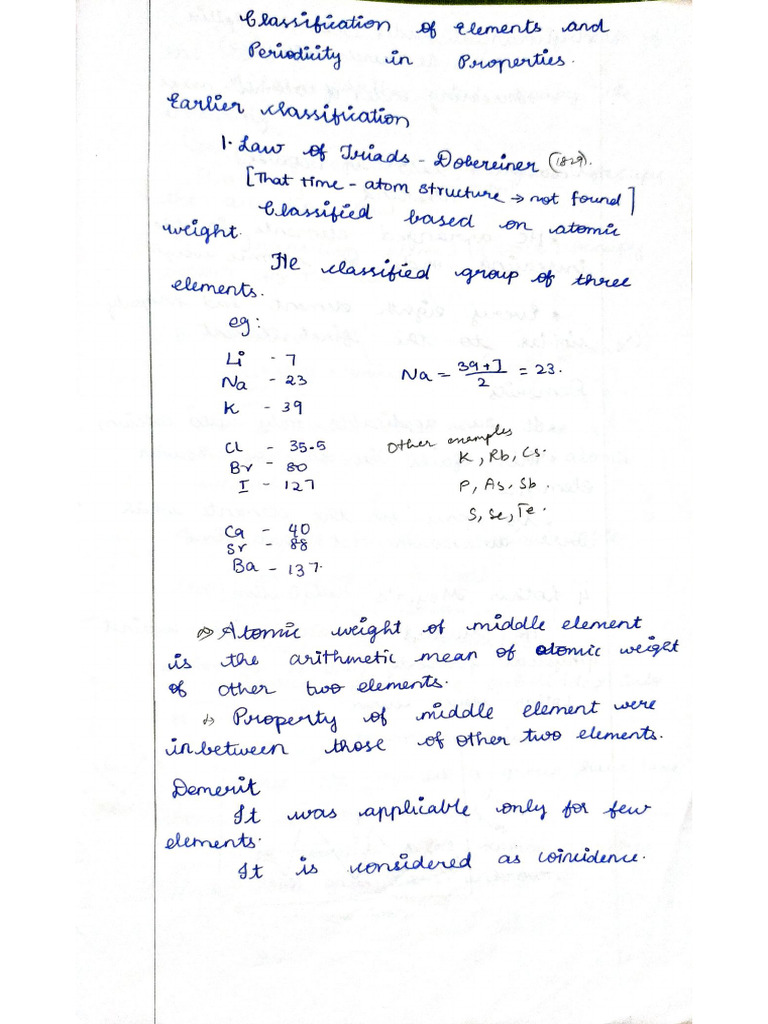 Classification of Elements and
Periodicity in Properties.
Earlier classification
1. Law of Triads - Dobereiner (1829).
[That time - atom structure → not found]
Classified based on atomic
weight.
He classified group of three
elements.
eg:
Li - 7
Na - 23
K - 39
Na = 39+7/2 = 23.
Cl - 35.5
Br - 80
I - 127
Other examples
K, Rb, Cs.
P, As, Sb.
S, Se, Te.
Ca - 40
Sr - 88
Ba - 137.
⇒ Atomic weight of middle element
is the arithmetic mean of atomic weight
of other two elements.
⇒ Property of middle element were
inbetween those of other two elements.
Demerit
It was applicable only for few
elements.
It is considered as coincidence.